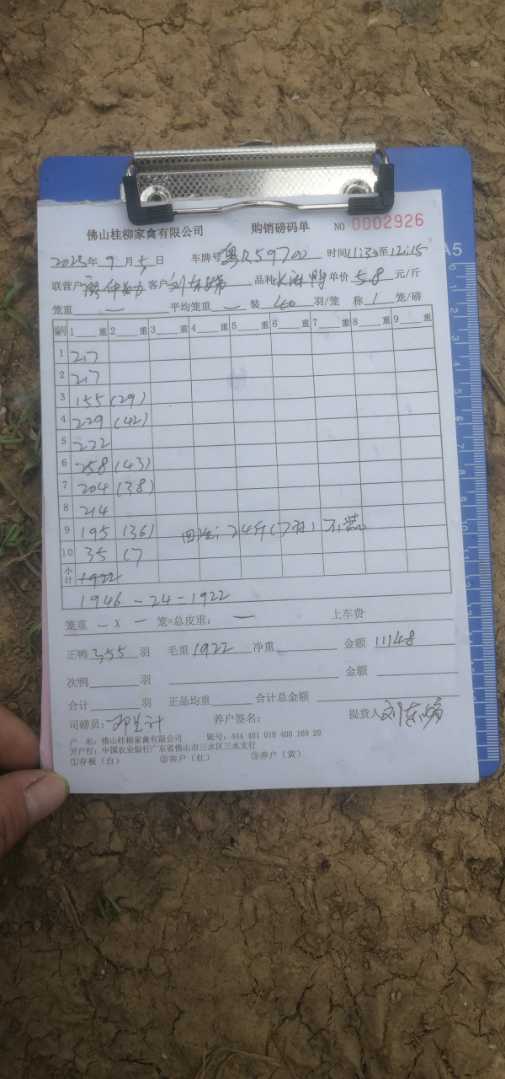 佛山桂柳家禽有限公司 购销磅码单 NO 0002926
2023年 9月 5日 车牌号 粤R59700 时间11:30至12:15
联营户 客户 刘 品种 单价 5.8 元/斤
笼重 — 平均笼重 — 装 40 羽/笼 称 1 笼/磅
编号 1 重 2 重 3 重 4 重 5 重 6 重 7 重 8 重 9 重
1 217
2 217
3 155 (29)
4 229 (42)
5 222
6 258 (43)
7 204 (38)
8 214
9 195 (36) 24斤(7羽)
10 35 (7
小计 1922
1946 - 24 - 1922
笼重 — X — 笼=总皮重: — 上车费
正鸭 355 羽 毛重 1922 净重 金额 11148
次鸭 羽 金额
合计 羽 正品均重 合计总金额
司磅员: 养户签名: 提货人 刘
户 名:佛山桂柳家禽有限公司
开户行:中国农业银行广东省佛山市三水区三水支行
①存根(白) ②客户(红) ③养户(黄)
A5